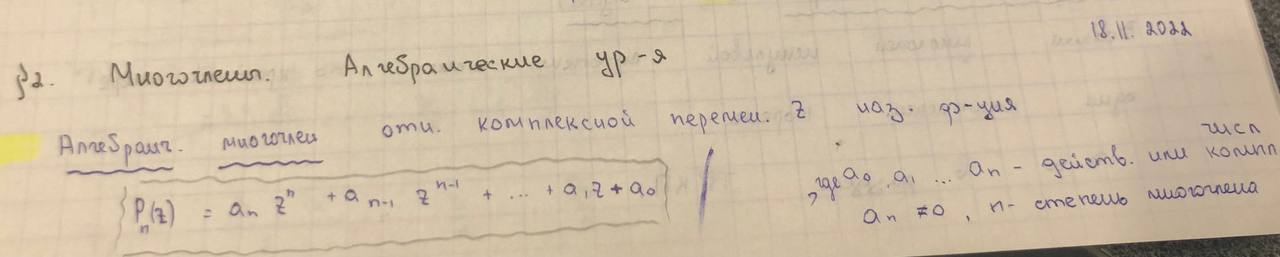 18.11.2022
§2. Многочлены. Алгебраические ур-я
Алгебраич. многочлен отн. комплексной перемен. z наз. ф-ция
P_n(z) = a_n z^n + a_{n-1} z^{n-1} + ... + a_1 z + a_0
, где a_0, a_1 ... a_n - действ. или компл числ
a_n ≠ 0, n - степень многочлена